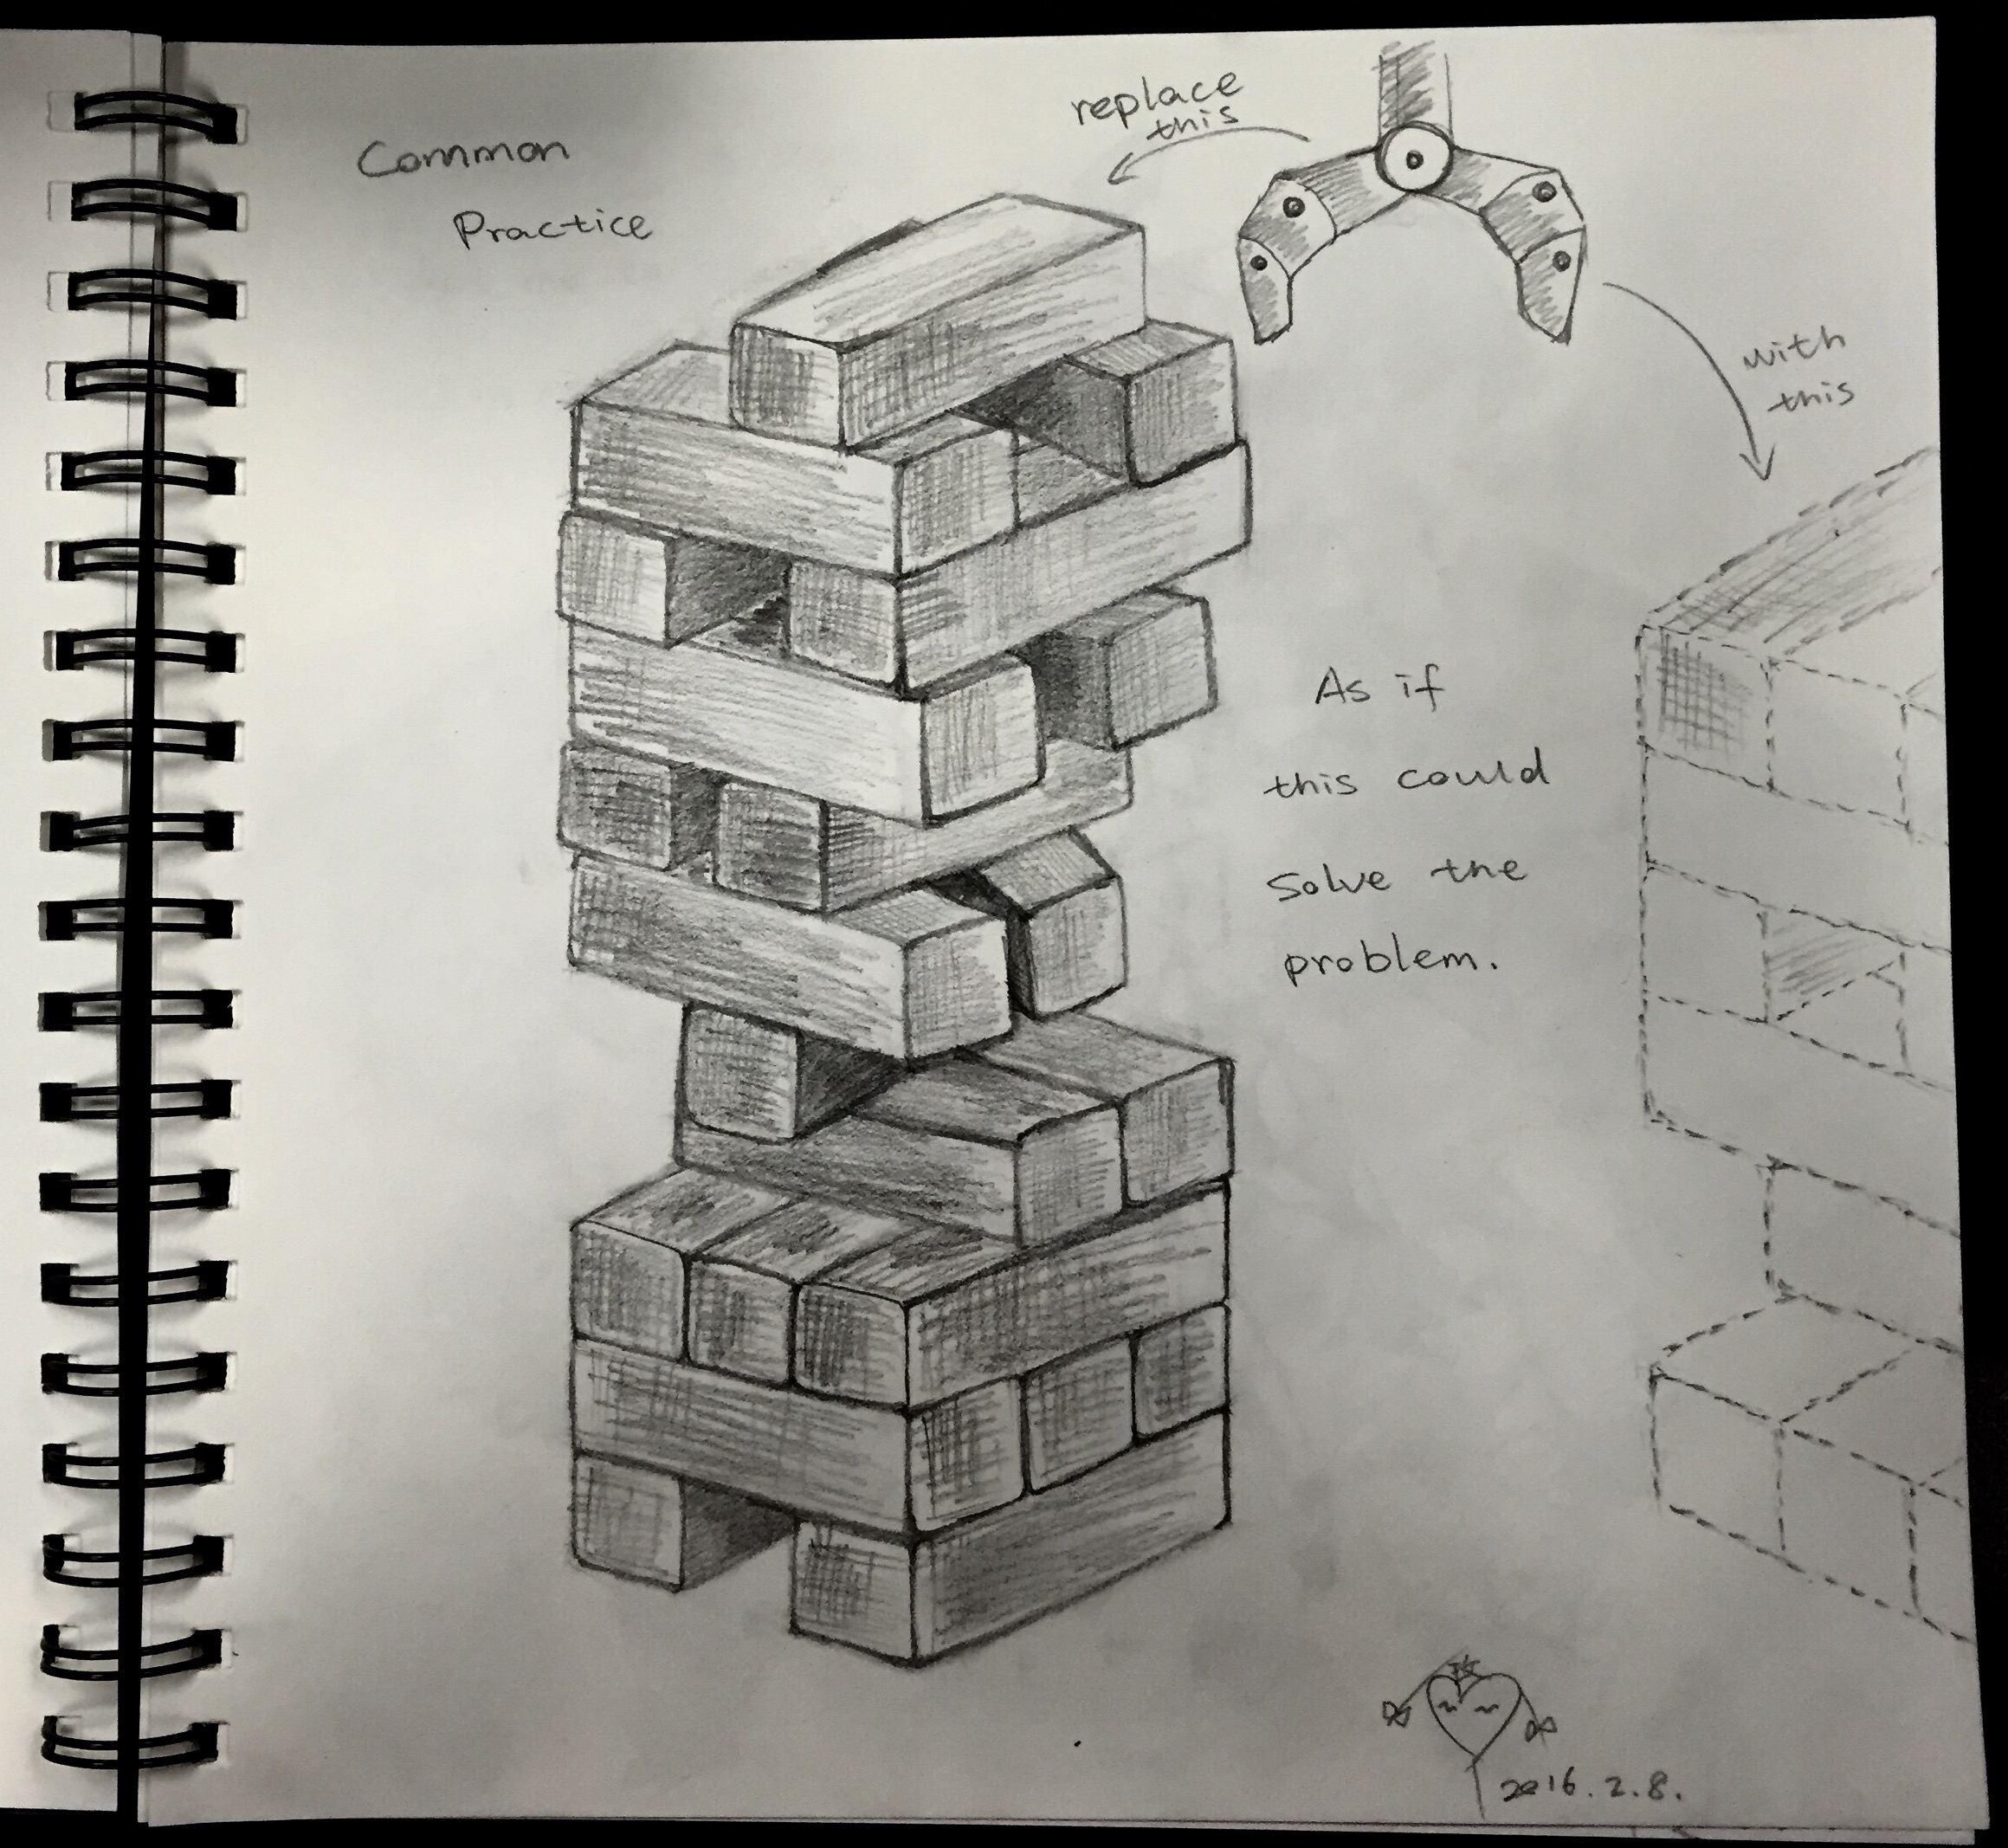 Common
Practice
replace
this
with
this
As if
this could
solve the
problem.
2016.2.8.